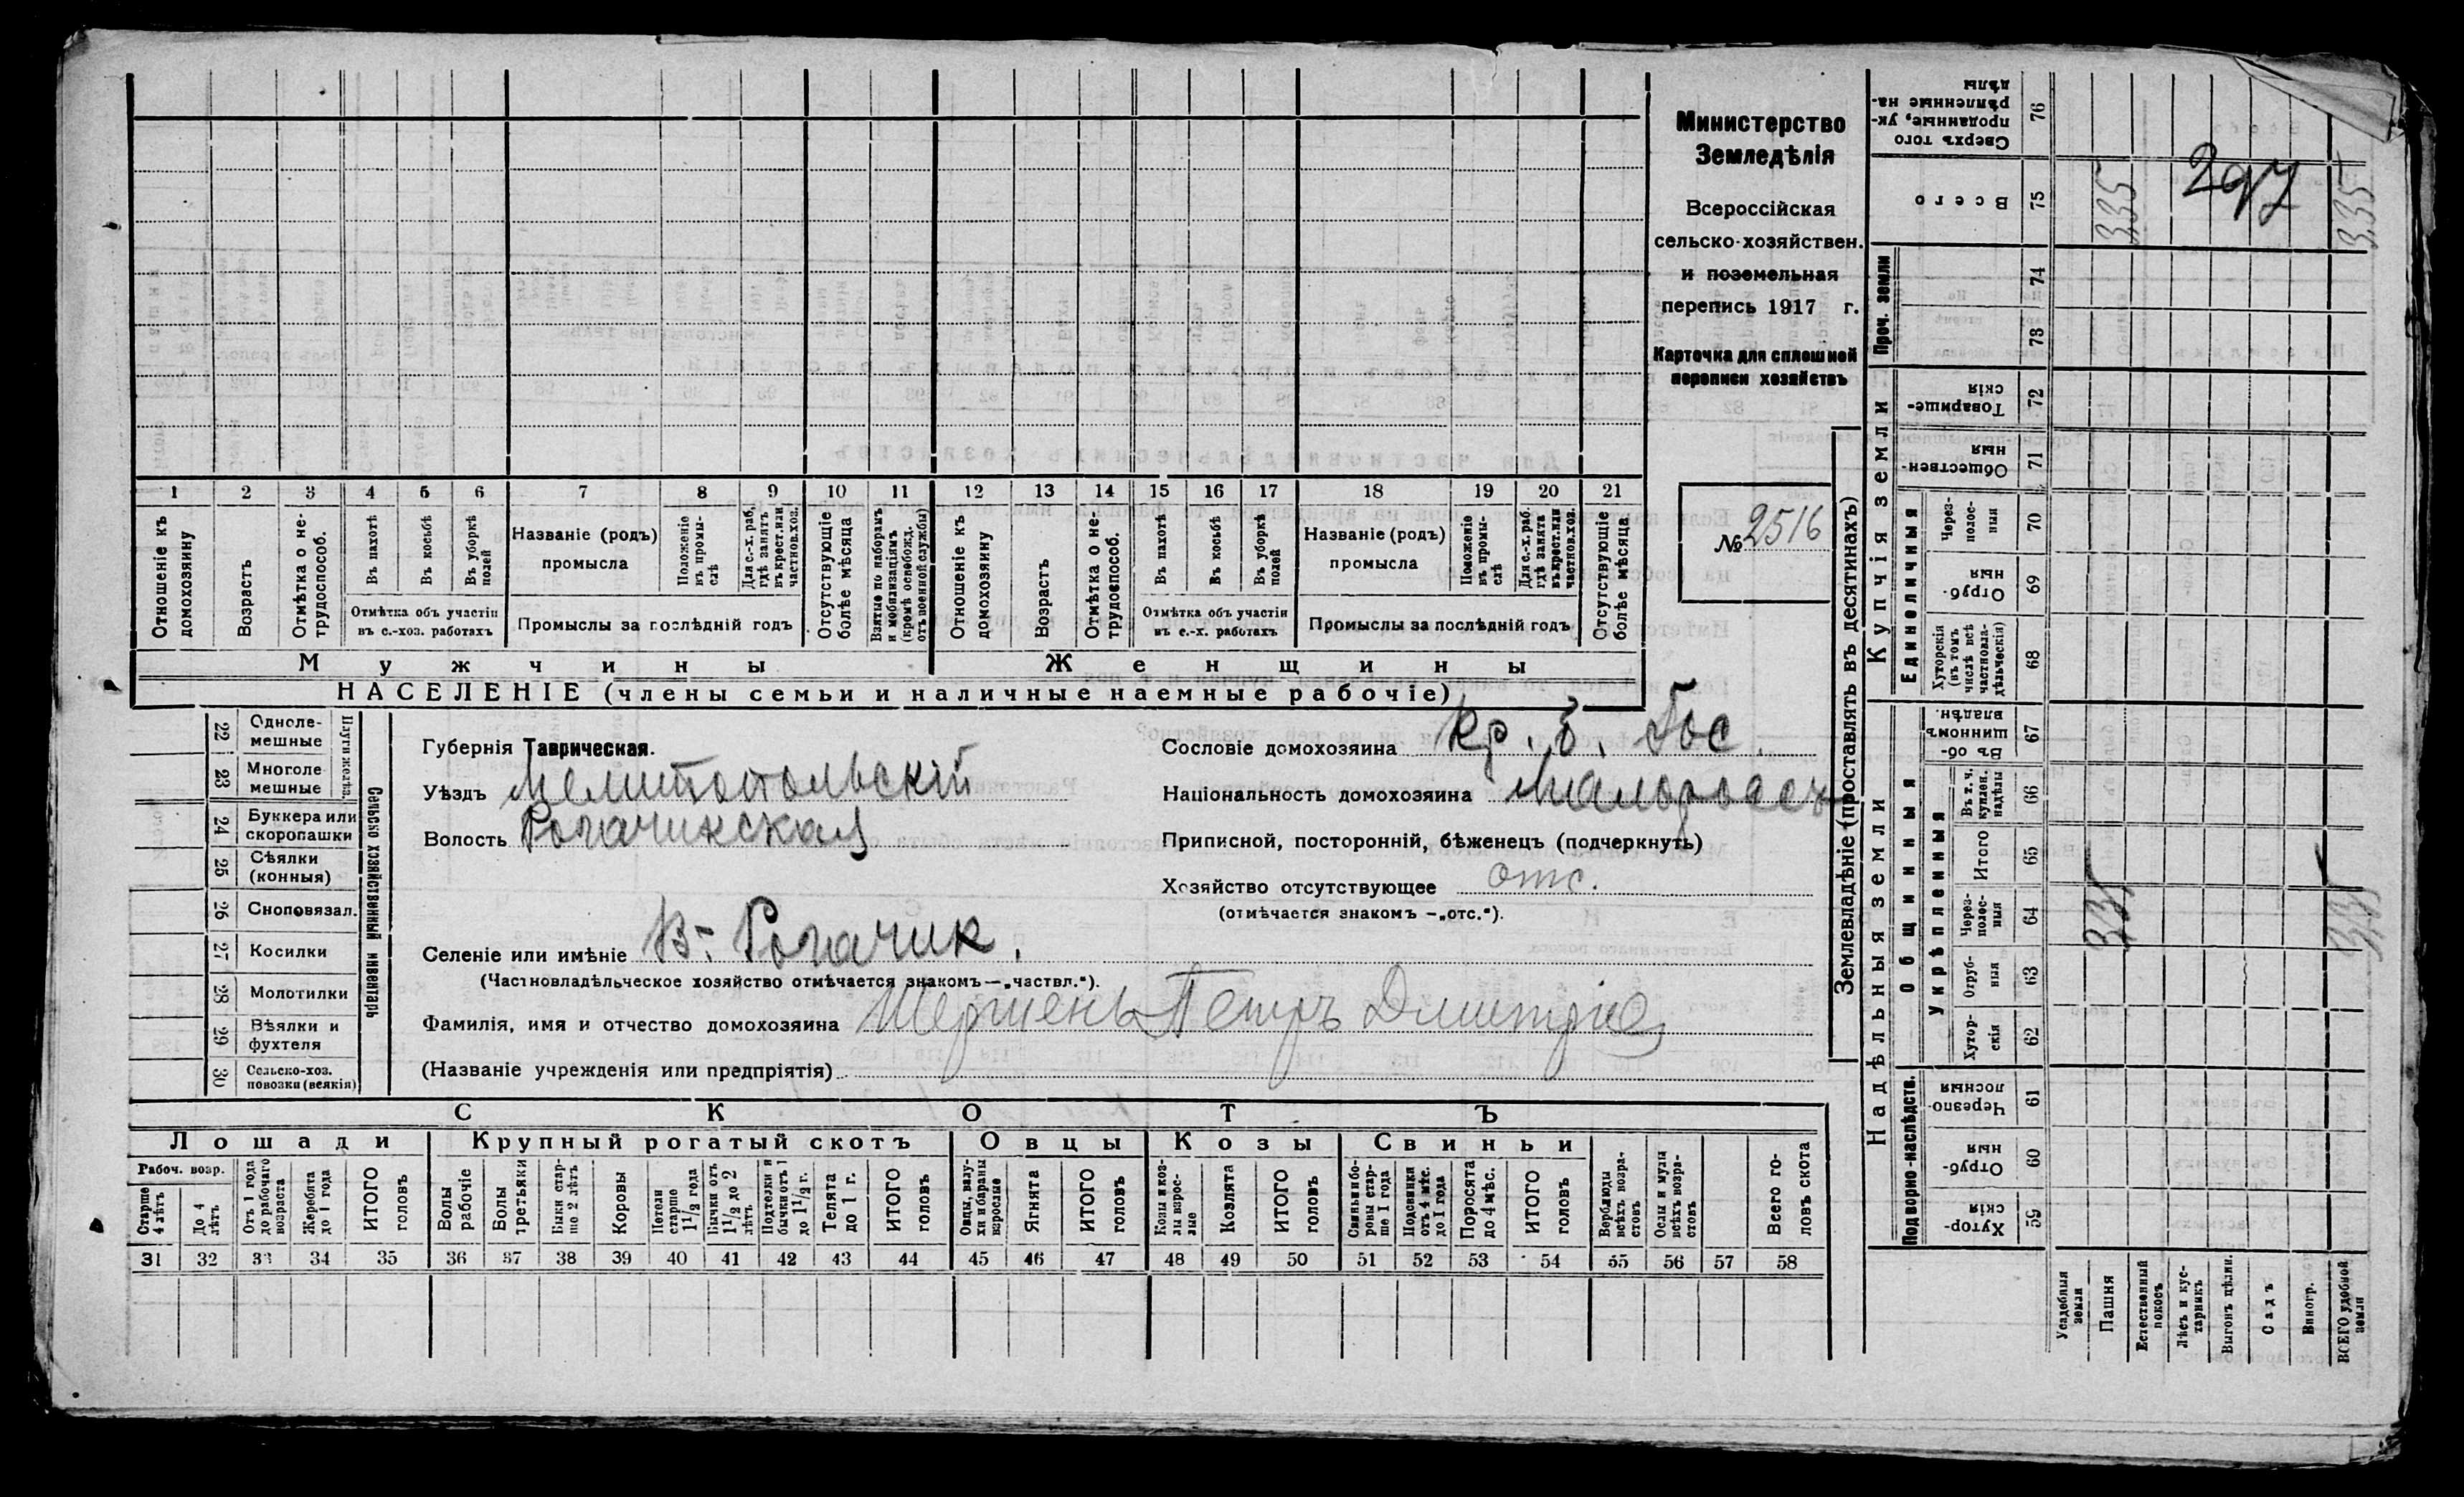 Министерство
Земледѣлія
Всероссійская
сельско-хозяйствен.
и поземельная
перепись 1917 г.
Карточка для сплошной
переписи хозяйствъ
№ 2516
1 2 3 4 5 6 7 8 9 10 11 12 13 14 15 16 17 18 19 20 21
Отношеніе къ домохозяину
Возрастъ
Отмѣтка о не-трудоспособ.
Въ пахотѣ
Въ косьбѣ
Въ уборкѣ полей
Отмѣтка объ участіи въ с.-хоз. работахъ
Названіе (родъ) промысла
Положеніе въ промы-слѣ
Для с.-х. раб, гдѣ занятъ въ крест. или частнов. хоз.
Промыслы за послѣдній годъ
Отсутствующіе болѣе мѣсяца
Взятые по наборамъ и мобилизаціямъ (кромѣ освобожд. отъ военной службы)
Отношеніе къ домохозяину
Возрастъ
Отмѣтка о не-трудоспособ.
Въ пахотѣ
Въ косьбѣ
Въ уборкѣ полей
Отмѣтка объ участіи въ с.-х. работахъ
Названіе (родъ) промысла
Положеніе въ промы-слѣ
Для с.-х. раб. гдѣ занята въ крест. или частнов. хоз.
Промыслы за послѣдній годъ
Отсутствующіе болѣе мѣсяца
Мужчины Женщины
НАСЕЛЕНІЕ (члены семьи и наличные наемные рабочіе)
22 Одноле-мешные
23 Многоле мешные
Плуги желѣз.
24 Буккера или скоропашки
25 Сѣялки (конныя)
26 Сноповязал.
27 Косилки
28 Молотилки
29 Вѣялки и фухтеля
30 Сельско-хоз. повозки (всякія)
Сельско хозяйственный инвентарь
Губернія Таврическая.
Уѣздъ Мелитопольскій
Волость Рогачикская
Селеніе или имѣніе В-Рогачик.
(Частновладѣльческое хозяйство отмѣчается знакомъ—„частвл.“).
Фамилія, имя и отчество домохозяина Шершень Петръ Дмитріе
(Названіе учрежденія или предпріятія)
Сословіе домохозяина Кр. б. Гос.
Національность домохозяина малороссъ
Приписной, посторонній, бѣженецъ (подчеркнуть)
Хозяйство отсутствующее отс.
(отмѣчается знакомъ —„отс.“).
СКОТЪ
Лошади Крупный рогатый скотъ Овцы Козы Свиньи
Рабоч. возр.
Старше 4 лѣтъ
До 4 лѣтъ
Отъ 1 года до рабочаго возраста
Жеребята до 1 года
ИТОГО головъ
Волы рабочіе
Волы третьяки
Быки стар-ше 2 лѣтъ
Коровы
Нетели старше 1 1/2 года
Бычки отъ 1 1/2 до 2 лѣтъ
Подтелки и бычки отъ 1 до 1 1/2 г.
Телята до 1 г.
ИТОГО головъ
Овцы, валу-хи и бараны взрослые
Ягнята
ИТОГО головъ
Козы и коз-лы взрос-лые
Козлята
ИТОГО головъ
Свиньи и бо-ровы стар-ше 1 года
Подсвинки отъ 4 мѣс. до 1 года
Поросята до 4 мѣс.
ИТОГО головъ
Верблюды всѣхъ возра-стовъ
Ослы и мулы всѣхъ возра-стовъ
Всего го-ловъ скота
31 32 33 34 35 36 37 38 39 40 41 42 43 44 45 46 47 48 49 50 51 52 53 54 55 56 57 58
Землевладѣніе (проставлять въ десятинахъ)
Купчія земли
Надѣльныя земли
Сверхъ того проданные, ук-рѣпленные на-дѣлы 76
Всего 75 3,35 297 3,35
Проч. земли 74 73
Товарище-скія 72
Обществен-ныя 71
Единоличныя
Через-полос-ныя 70
Отруб-ныя 69
Хуторскія (въ томъ числѣ всѣ частновла-дѣльческія) 68
Общинныя
Въ об-щинномъ владѣн. 67
Укрѣпленныя
Въ т. ч. куплен. надѣлы 66
Итого 65
Через-полос-ныя 64 3,35 3,35
Отруб-ныя 63
Хутор-скія 62
Подворно-наслѣдств.
Черезпо-лосныя 61
Отруб-ныя 60
Хутор-скія 59
Усадебныя земли
Пашня
Естественный покосъ
Лѣсъ и кус-тарникъ
Выгонъ цѣлин.
Садъ
Виногр.
ВСЕГО удобной земли